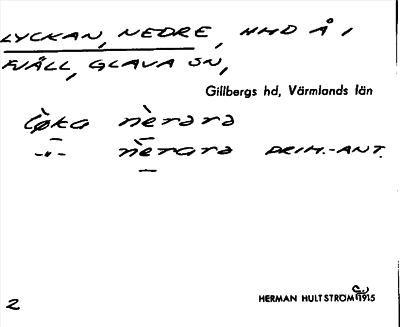 LYCKAN, NEDRE, HMD Å I
FJÄLL, GLAVA SN,
Gillbergs hd, Värmlands län
lø̀ka nèrərə
-"- nèrarə PRIM.-ANT.
HERMAN HULTSTRÖM 1915
2